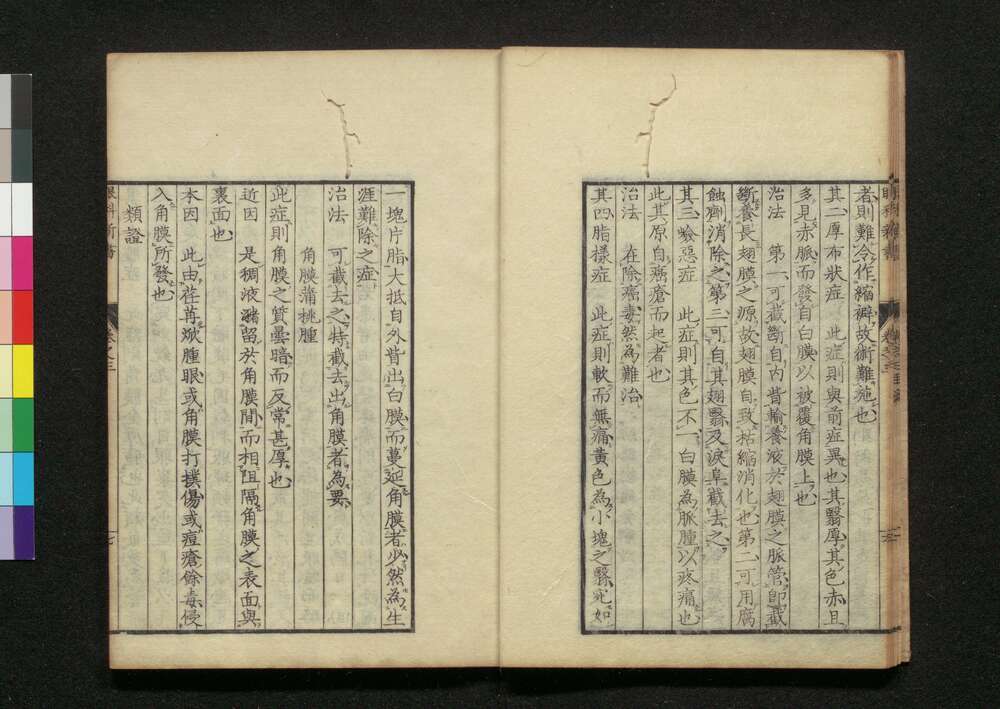 者則難令作縮襞故術難施也
其二厚布狀症　此症則與前症異也其翳厚其色赤且
多見赤脈而發自白膜以被覆角膜上也
治法　第一可截斷自內眥輸養液於翅膜之脈管即截
斷養長翅膜之源故翅膜自致枯縮消化也第二可用腐
蝕劑消除之第三可自其翅翳及淚阜截去之
其三喰惡症　此症則其色不一白膜為脈腫以疼痛也
此其原自瘡而起者也
治法　在除毒然為難治
其四脂樣症　此症則軟而無痛黃色為小塊之翳宛如
一塊片脂大抵自外眥出白膜而蔓延角膜者必然為生
涯難除之症
治法　可截去之特截去出角膜者為要
角膜蒲桃腫
此症則角膜之質曇暗而反常甚厚也
近因　是稠液瀦留於角膜間而相阻隔角膜之表面與
裏面也
本因　此由荏苒焮腫眼或角膜打撲傷或痘瘡餘毒侵
入角膜所發也
類證
眼科新書
卷之三